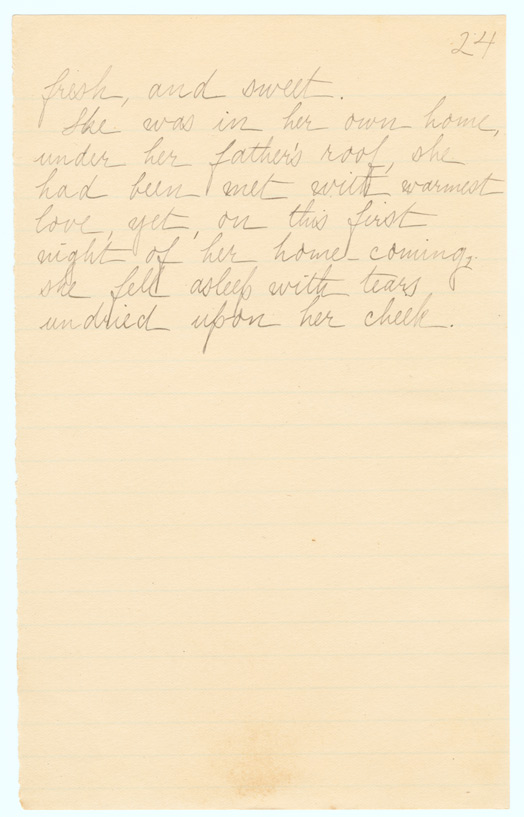 24
fresh, and sweet.
She was in her own home,
under her father's roof, she
had been met with warmest
love, yet, on this first
night of her home-coming,
she fell asleep with tears
undried upon her cheek.